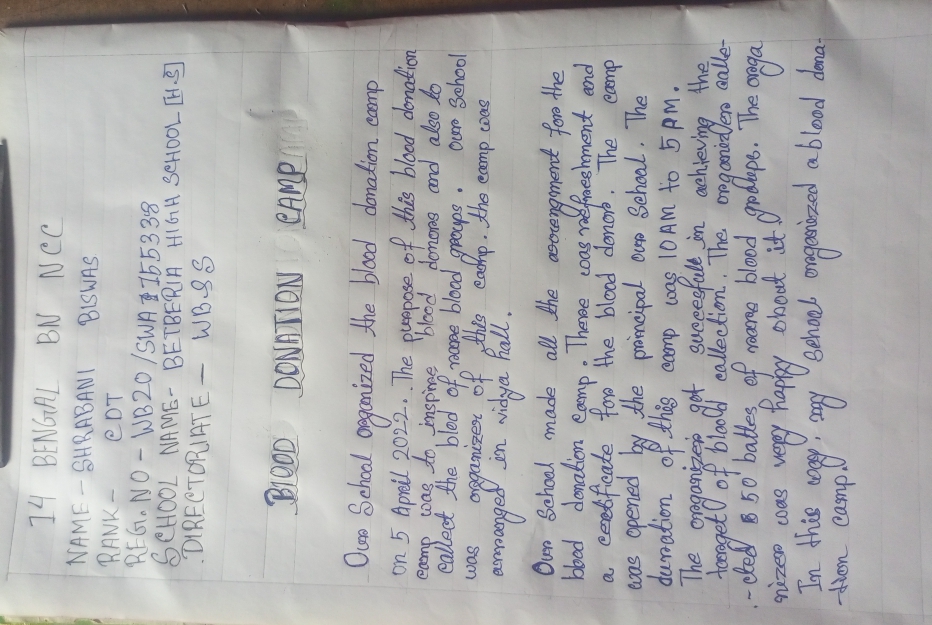 14 BENGAL BN NCC
NAME - SHARABANI BISWAS
RANK - CDT
REG. NO - WB20/SWA 155338
SCHOOL NAME - BETBERIA HIGH SCHOOL [H.S]
DIRECTORIATE - WB & S
BlOOD DONATION CAMP
Our School organized the blood donation camp
on 5 April 2022. The purpose of this blood donation
camp was to inspire blood donors and also to
collect the blod of rare blood groups. our school
was organizer of this camp. the camp was
arranged in vidya hall.
Our School made all the arrengment for the
blood donation camp. There was refreshment and
a certificate for the blood donor. The camp
was opened by the principal our School. The
duration of this camp was 10 AM to 5 PM.
The organizer got succesfull in achieving the
target of blood collection. The organizer colle-
-cted 50 battles of rare blood groups. The orga
nizer was very happy about it.
In this way, my school organized a blood dona-
-tion camp.